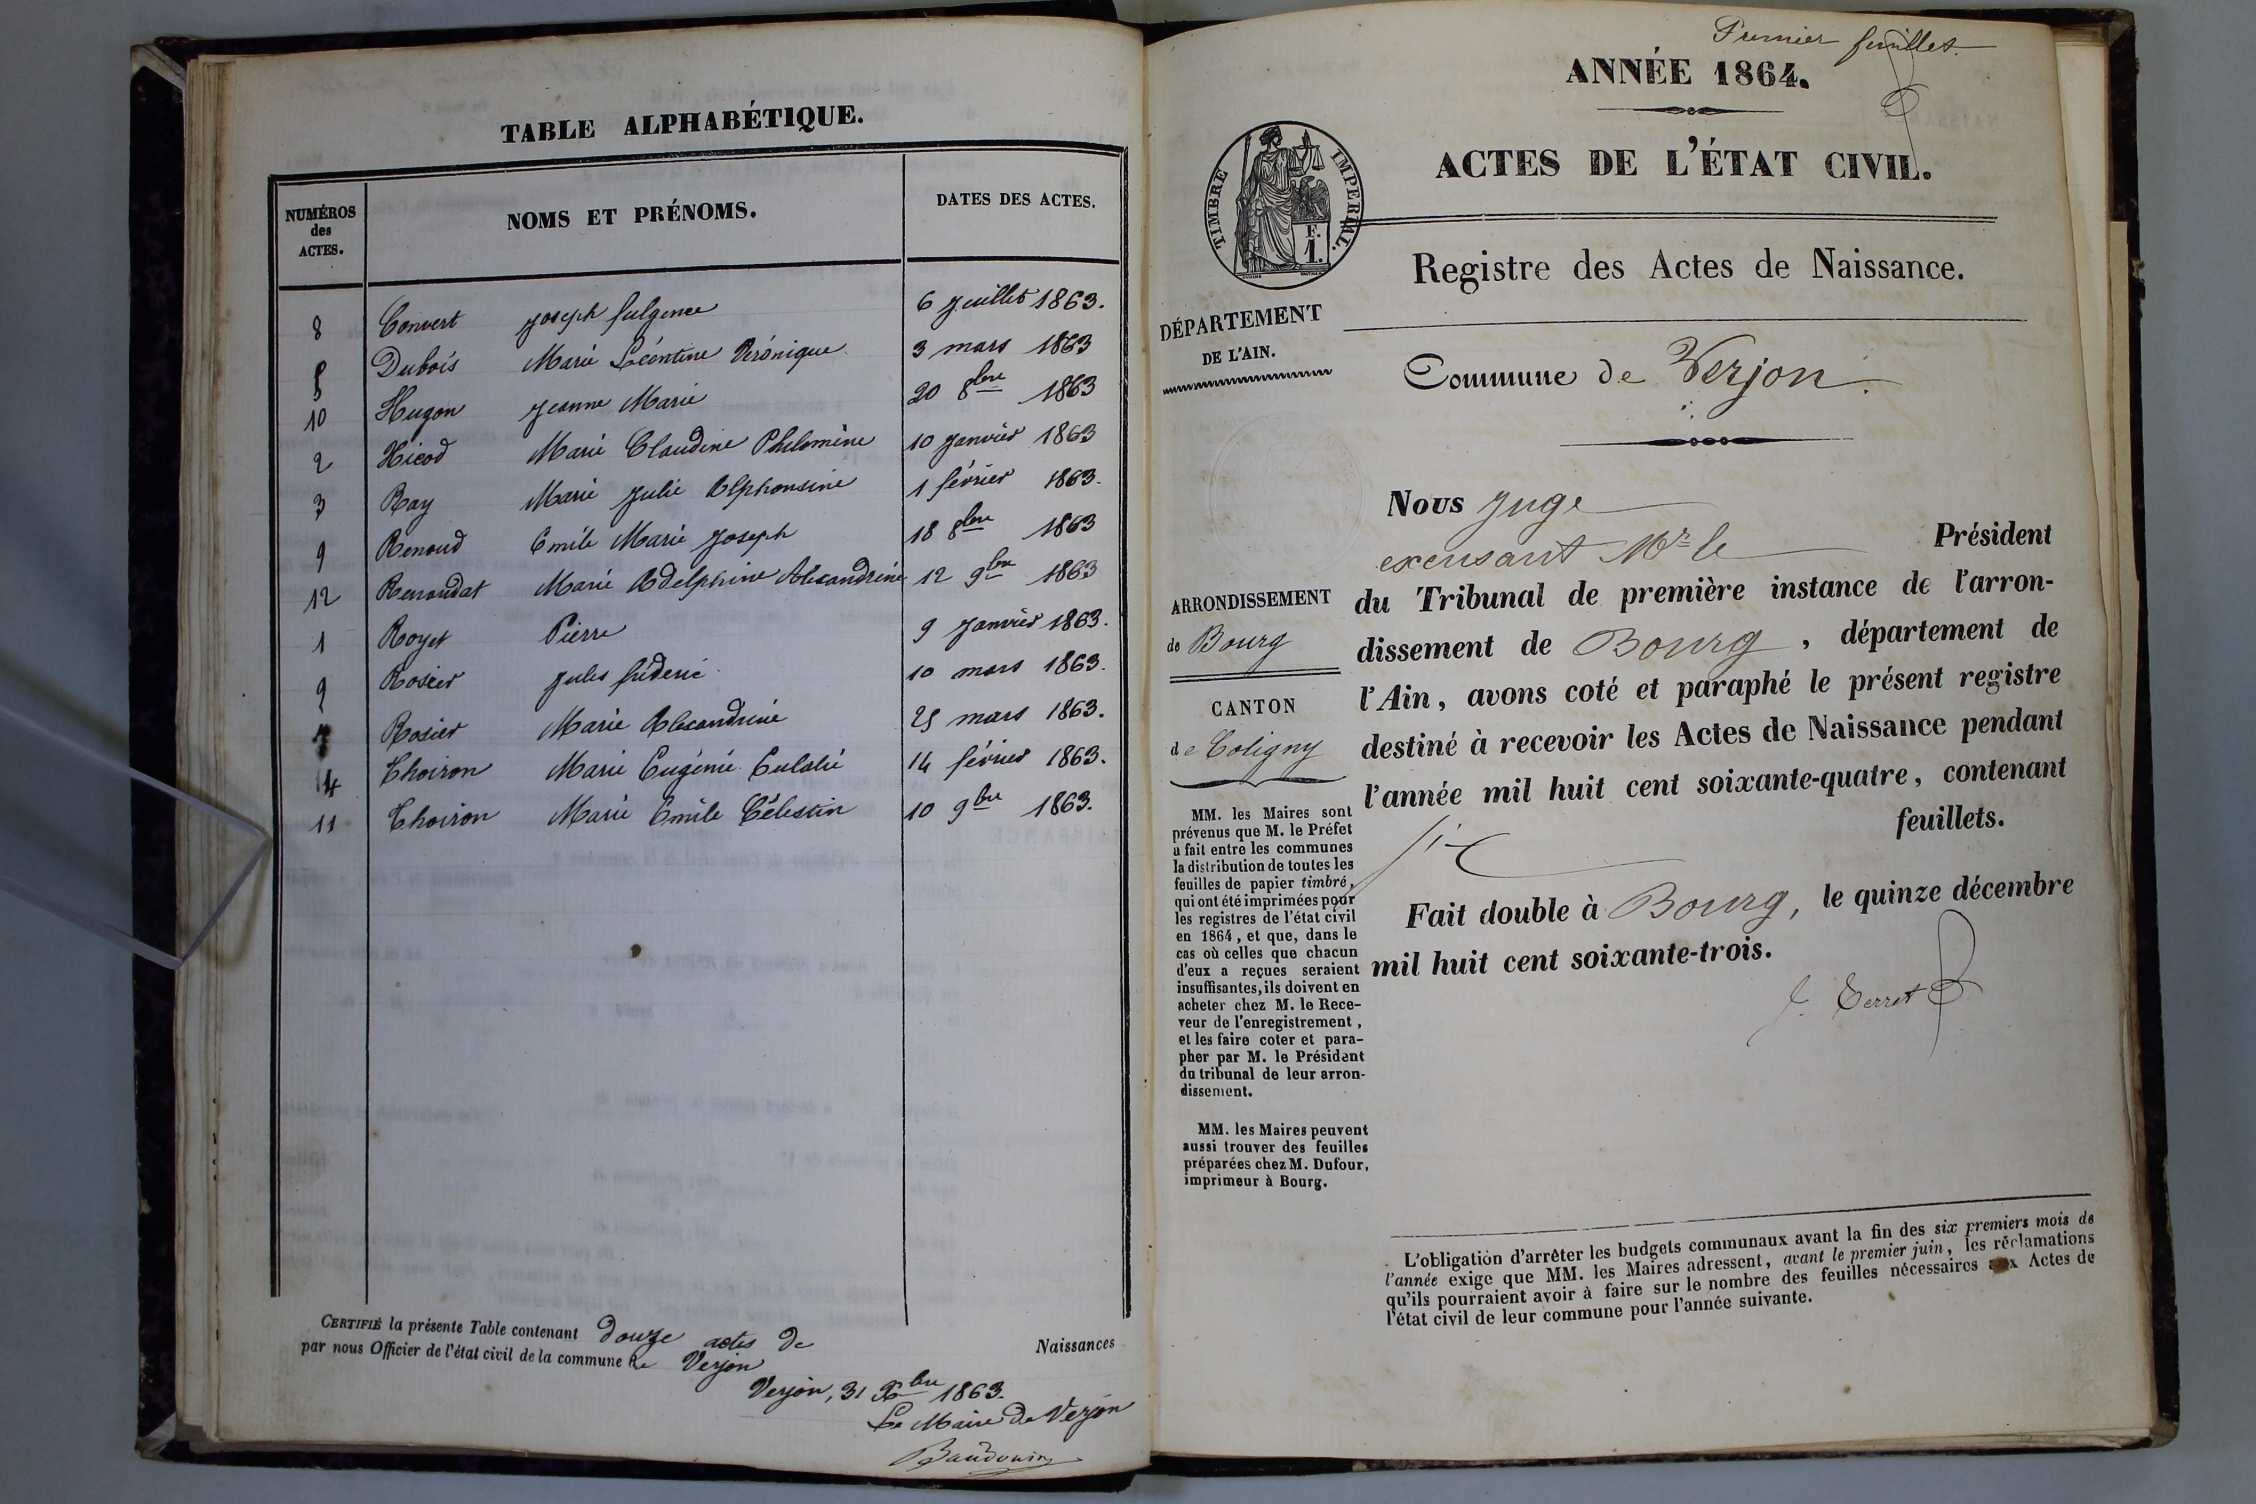 TABLE ALPHABÉTIQUE.
NUMÉROS
des
ACTES.
NOMS ET PRÉNOMS.
DATES DES ACTES.
8 Convert Joseph fulgence 6 juillet 1863.
5 Dubois Marie Léontine Véronique 3 mars 1863
10 Hugon Jeanne Marie 20 8bre 1863
2 Nicod Marie Claudine Philomène 10 janvier 1863
3 Ray Marie Julie Alphonsine 1 février 1863.
9 Renoud Emile Marie Joseph 18 8bre 1863
12 Renoudat Marie Adelphine Alexandrine 12 9bre 1863
1 Royet Pierre 9 janvier 1863.
Rosier Jules fréderic 10 mars 1863.
Rosier Marie Alexandrine 25 mars 1863.
4 Thoiron Marie Eugénie Eulalie 14 février 1863.
11 Thoiron Marie Emile Célestin 10 9bre 1863.
CERTIFIÉ la présente Table contenant douze actes de Naissances
par nous Officier de l'état civil de la commune de Verjon
Verjon, 31 Xbre 1863.
Le Maire de Verjon
Baudouin
Premier feuillet.
ANNÉE 1864.
ACTES DE L'ÉTAT CIVIL.
TIMBRE IMPERIAL.
F.
1.
Registre des Actes de Naissance.
DÉPARTEMENT
DE L'AIN.
Commune de Verjon.
ARRONDISSEMENT
de Bourg
CANTON
de Coligny
MM. les Maires sont
prévenus que M. le Préfet
a fait entre les communes
la distribution de toutes les
feuilles de papier timbré,
qui ont été imprimées pour
les registres de l'état civil
en 1864, et que, dans le
cas où celles que chacun
d'eux a reçues seraient
insuffisantes, ils doivent en
acheter chez M. le Rece-
veur de l'enregistrement,
et les faire coter et para-
pher par M. le Président
du tribunal de leur arron-
dissement.
MM. les Maires peuvent
aussi trouver des feuilles
préparées chez M. Dufour,
imprimeur à Bourg.
Nous Juge
excusant Mr le Président
du Tribunal de première instance de l'arron-
dissement de Bourg, département de
l'Ain, avons coté et paraphé le présent registre
destiné à recevoir les Actes de Naissance pendant
l'année mil huit cent soixante-quatre, contenant
six feuillets.
Fait double à Bourg, le quinze décembre
mil huit cent soixante-trois.
Terret
L'obligation d'arrêter les budgets communaux avant la fin des six premiers mois de
l'année exige que MM. les Maires adressent, avant le premier juin, les réclamations
qu'ils pourraient avoir à faire sur le nombre des feuilles nécessaires aux Actes de
l'état civil de leur commune pour l'année suivante.